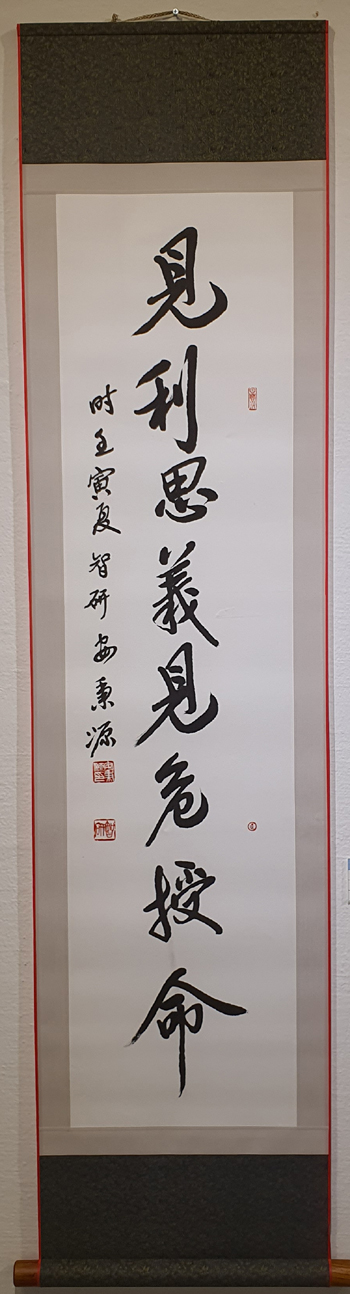 見利思義見危授命
时壬寅夏智研安秉源